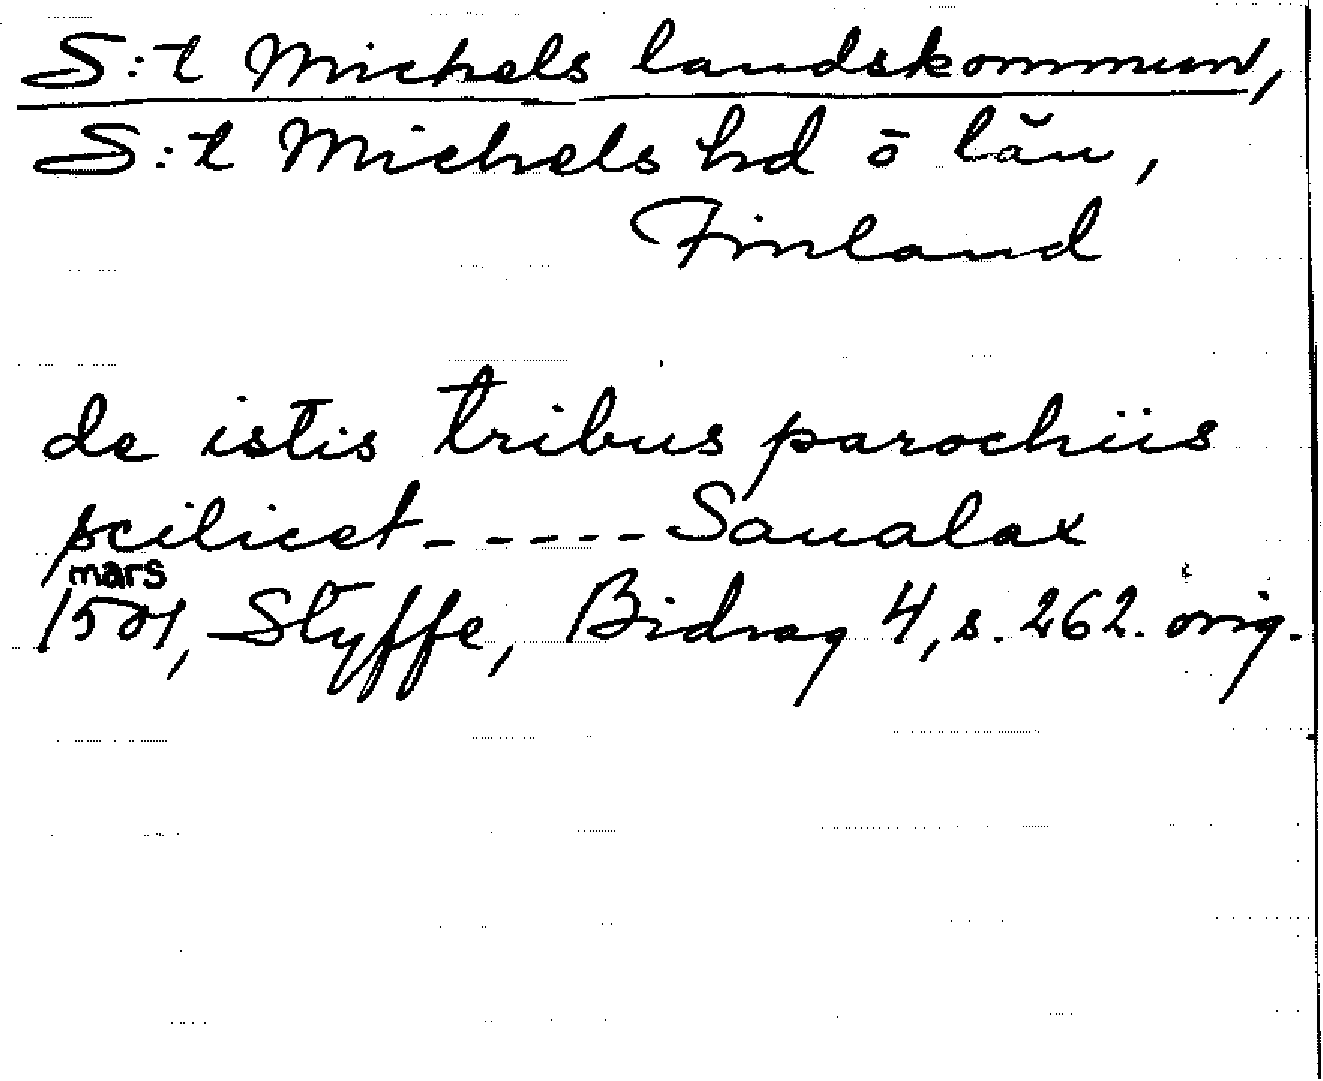 S:t Michels landskommun,
S:t Michels hd ō län,
Finland
de istis tribus parochiis
scilicet - - - - - Saualax
mars
1501, Styffe, Bidrag 4, s. 262. orig.